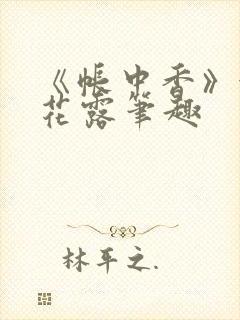 《帐中香》
花露笔趣
林平之.